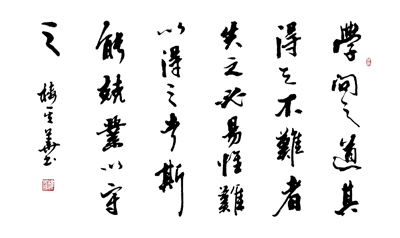 學問之道其
得之不難者
失之必易惟難
以得之者斯
能兢業以守
之